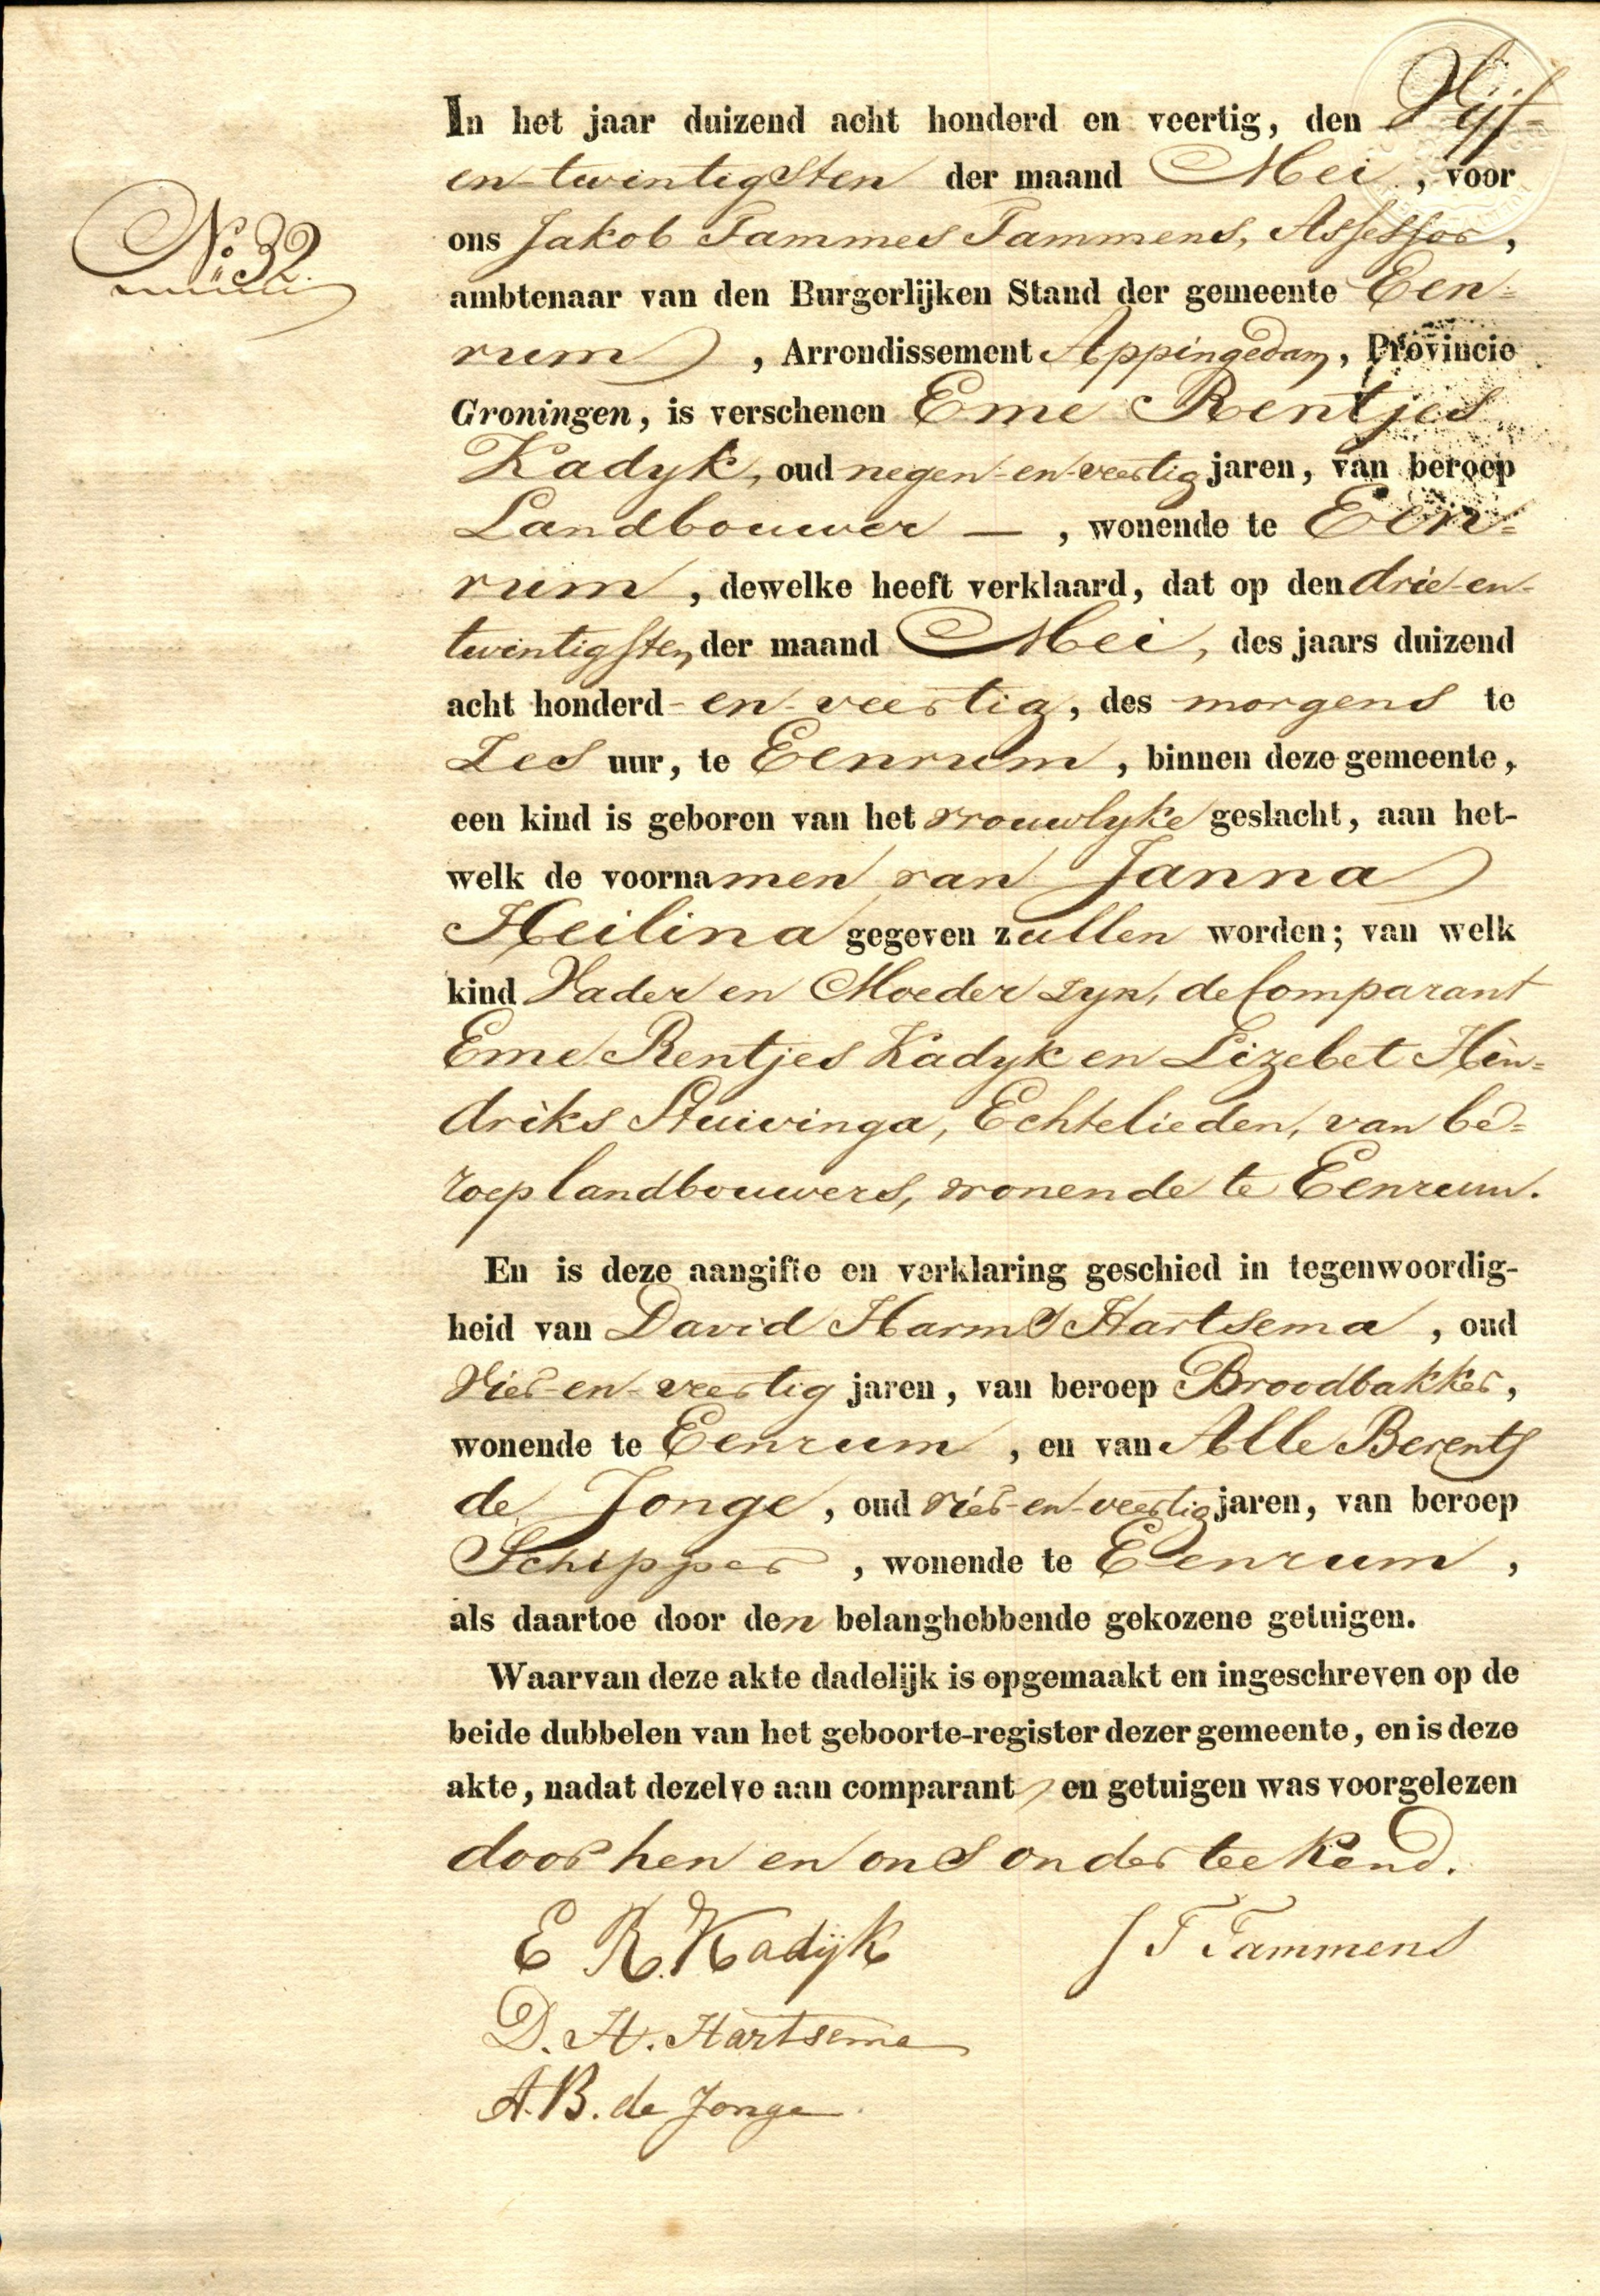 No. 32.
In het jaar duizend acht honderd en veertig, den Vijf-
en-twintigsten der maand Mei, voor
ons Jakob Tammes Tammens, Assessor,
ambtenaar van den Burgerlijken Stand der gemeente Een-
rum, Arrondissement Appingedam, Provincie
Groningen, is verschenen Eme Rentjes
Kadyk, oud negen-en-veertig jaren, van beroep
Landbouwer —, wonende te Een-
rum, dewelke heeft verklaard, dat op den drie-en-
twintigsten der maand Mei, des jaars duizend
acht honderd-en-veertig, des morgens te
Zes uur, te Eenrum, binnen deze gemeente,
een kind is geboren van het vrouwlyke geslacht, aan het-
welk de voornamen van Janna
Heilina gegeven zullen worden; van welk
kind Vader en Moeder zyn, de Comparant
Eme Rentjes Kadyk en Lizebet Hin-
driks Stuivinga, Echtelieden, van be-
roep landbouwers, wonende te Eenrum.
En is deze aangifte en verklaring geschied in tegenwoordig-
heid van David Harms Hartsema, oud
Vier-en-veertig jaren, van beroep Broodbakker,
wonende te Eenrum, en van Alle Berents
de Jonge, oud vier-en-veertig jaren, van beroep
Schipper, wonende te Eenrum,
als daartoe door den belanghebbende gekozene getuigen.
Waarvan deze akte dadelijk is opgemaakt en ingeschreven op de
beide dubbelen van het geboorte-register dezer gemeente, en is deze
akte, nadat dezelve aan comparant en getuigen was voorgelezen
door hen en ons onderteekend.
E R. Kadijk J T Tammens
D. H. Hartsema
A. B. de Jonge.